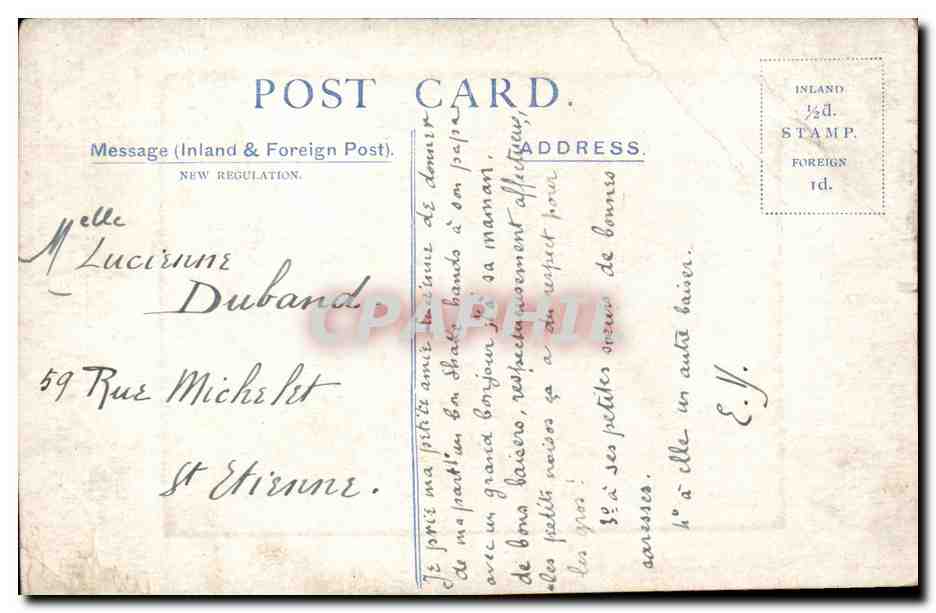 POST CARD.
Message (Inland & Foreign Post).
NEW REGULATION.
ADDRESS.
INLAND
½d.
STAMP.
FOREIGN
1d.
Melle
Lucienne
Duband.
59 Rue Michelet
St Etienne.
Je prie ma petite amie Lucienne de donner
de ma part 1° un bon shake hands à son papa
avec un grand bonjour, 2° à sa maman
de bons baisers, respectueusement affectueux,
les petits ça a du respect pour
les gros!
3° à ses petites sœurs de bonnes
caresses.
4° à elle un autre baiser.
E.Y.
CPAPHIL